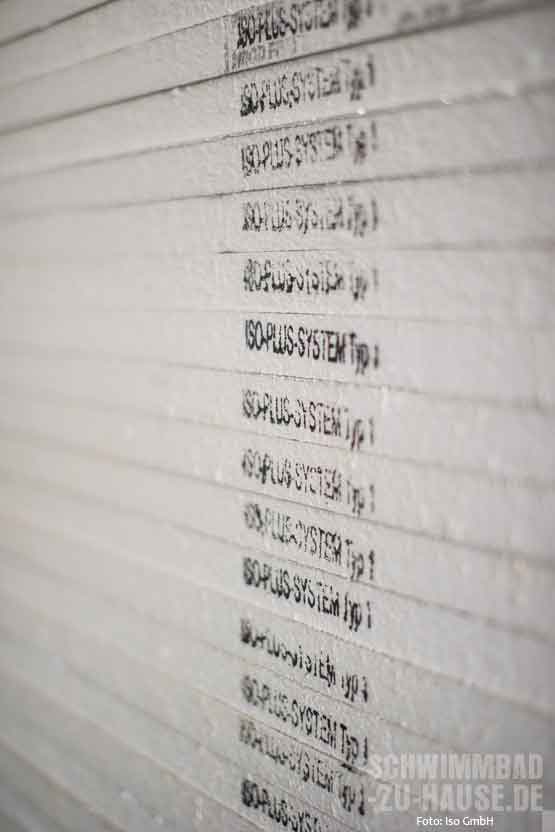 ISO-PLUS-SYSTEM Typ
ISO-PLUS-SYSTEM Typ 1
ISO-PLUS-SYSTEM Typ 1
ISO-PLUS-SYSTEM Typ 1
ISO-PLUS-SYSTEM Typ 1
ISO-PLUS-SYSTEM Typ 1
ISO-PLUS-SYSTEM Typ 1
ISO-PLUS-SYSTEM Typ 1
ISO-PLUS-SYSTEM Typ 1
ISO-PLUS-SYSTEM Typ 1
ISO-PLUS-SYSTEM Typ 1
ISO-PLUS-SYSTEM Typ 1
ISO-PLUS-SYSTEM Typ 1
ISO-PLUS-SYST
SCHWIMMBAD
-ZU-HAUSE.DE
Foto: Iso GmbH